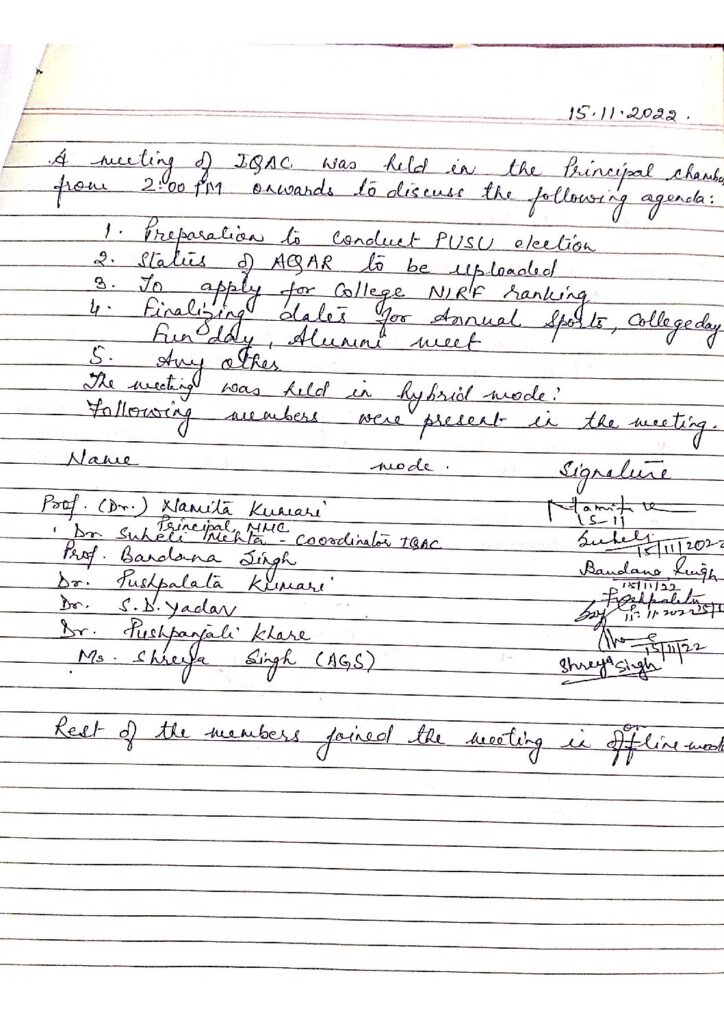 15.11.2022.
A meeting of IQAC was held in the Principal chamber
from 2:00 PM onwards to discuss the following agenda:
1. Preparation to conduct PUSU election
2. Status of AQAR to be uploaded
3. To apply for College NIRF ranking
4. Finalizing dates for Annual Sports, College day
Fun day, Alumni meet
5. Any other
The meeting was held in hybrid mode:
Following members were present in the meeting.
Name mode. Signature
Prof. (Dr.) Namita Kumari Namita
Principal, MMC 15-11
Dr. Suheli Mehta - Coordinator IQAC Suheli
15/11/2022
Prof. Bandana Singh Bandana Singh
15/11/22
Dr. Pushpalata Kumari Pushpalata
11.11.2022
Dr. S.B. Yadav
Dr. Pushpanjali Khare
15/11/22
Ms. Shreya Singh (AGS) Shreya Singh
Rest of the members joined the meeting in offline mode